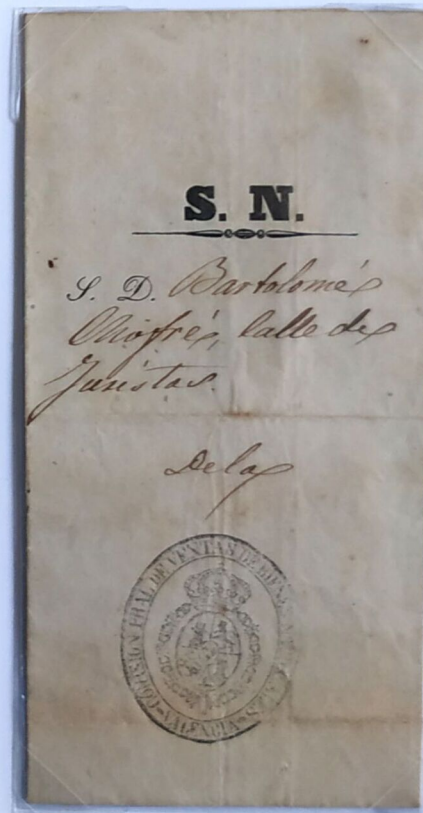 S. N.
S. D. Bartolomé
Onofré, Calle de
Juristas.
De la
COMISION PRAL DE VENTAS DE BIENES
VALENCIA